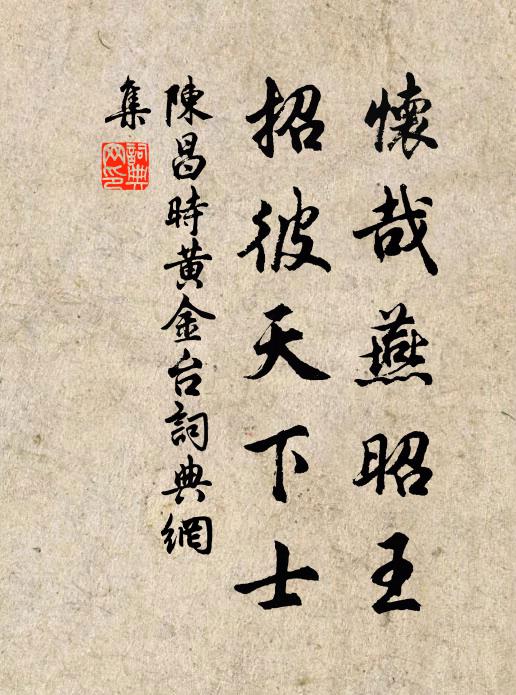 懷哉燕昭王
招彼天下士
陳昌時黃金台詞典網
集
詞典網印